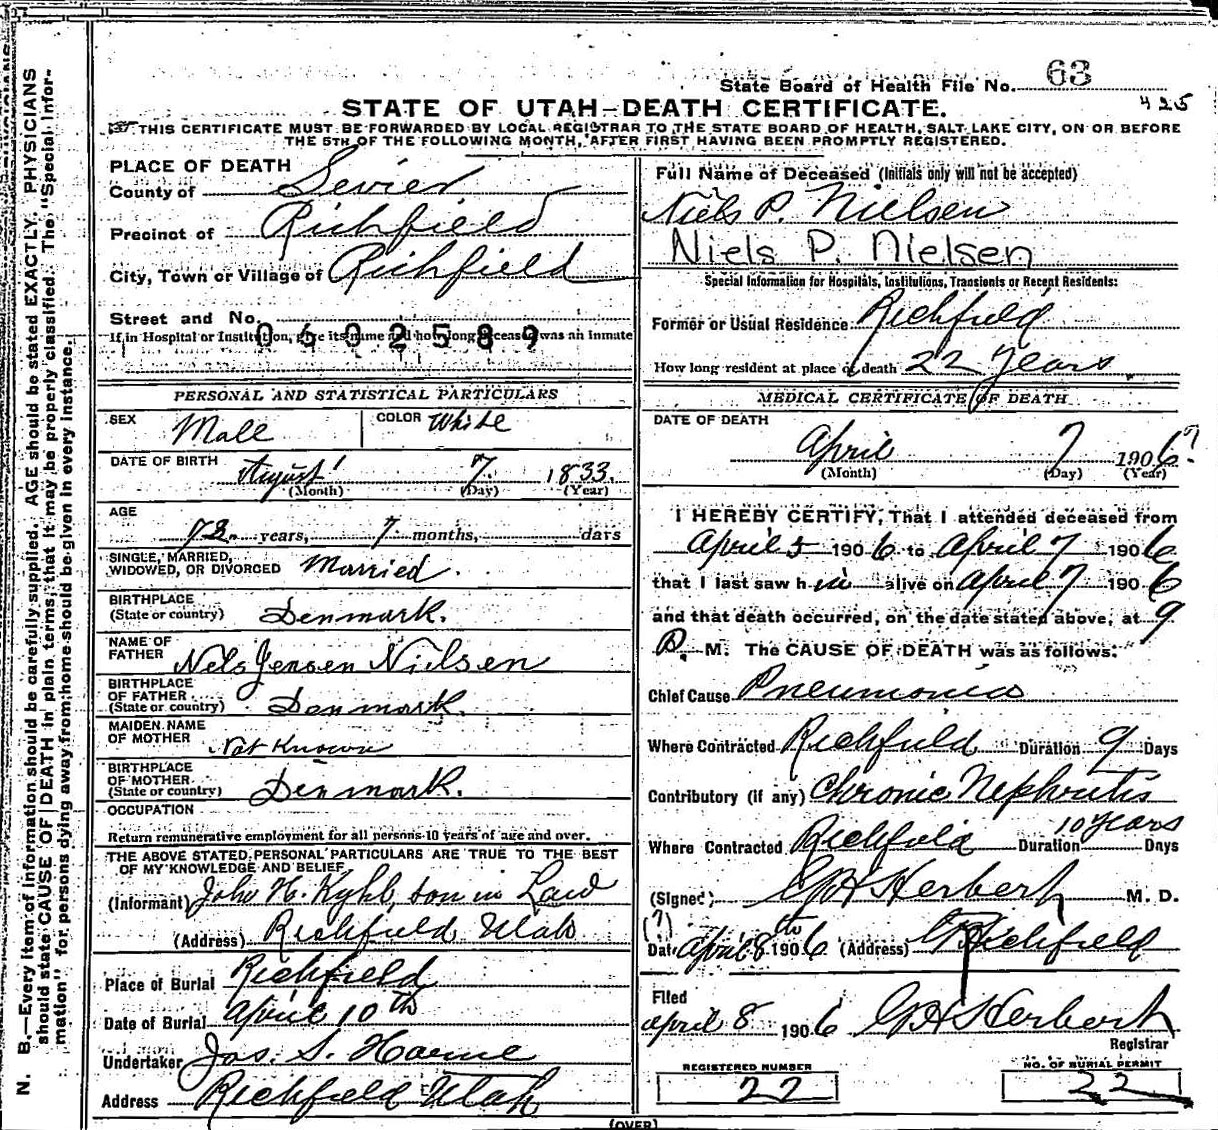 State Board of Health File No. 63
425
STATE OF UTAH—DEATH CERTIFICATE.
THIS CERTIFICATE MUST BE FORWARDED BY LOCAL REGISTRAR TO THE STATE BOARD OF HEALTH, SALT LAKE CITY, ON OR BEFORE
THE 5TH OF THE FOLLOWING MONTH, AFTER FIRST HAVING BEEN PROMPTLY REGISTERED.
PLACE OF DEATH
County of Sevier
Precinct of Richfield
City, Town or Village of Richfield
Street and No.
If in Hospital or Institution, give its name and how long deceased was an inmate
0602589
PERSONAL AND STATISTICAL PARTICULARS
SEX Male COLOR White
DATE OF BIRTH August 7 1833.
(Month) (Day) (Year)
AGE
72 years, 7 months, days
SINGLE, MARRIED,
WIDOWED, OR DIVORCED Married.
BIRTHPLACE
(State or country) Denmark.
NAME OF
FATHER Nels Jensen Nielsen
BIRTHPLACE
OF FATHER
(State or country) Denmark.
MAIDEN NAME
OF MOTHER Not Known
BIRTHPLACE
OF MOTHER
(State or country) Denmark.
OCCUPATION
Return remunerative employment for all persons 10 years of age and over.
THE ABOVE STATED PERSONAL PARTICULARS ARE TRUE TO THE BEST
OF MY KNOWLEDGE AND BELIEF
(Informant) John H. Kyhl, son in Law
(Address) Richfield Utah
Place of Burial Richfield
Date of Burial April 10th
Undertaker Jos. S. Horne
Address Richfield Utah
Full Name of Deceased (Initials only will not be accepted)
Niels P. Nielsen
Niels P. Nielsen
Special Information for Hospitals, Institutions, Transients or Recent Residents:
Former or Usual Residence Richfield
How long resident at place of death 22 years
MEDICAL CERTIFICATE OF DEATH
DATE OF DEATH
April 7 1906?
(Month) (Day) (Year)
I HEREBY CERTIFY, That I attended deceased from
April 5 1906 to April 7 1906
that I last saw him alive on April 7 1906
and that death occurred, on the date stated above, at 9
P. M. The CAUSE OF DEATH was as follows:
Chief Cause Pneumonia
Where Contracted Richfield Duration 9 Days
Contributory (if any) Chronic Nephritis
10 years
Where Contracted Richfield Duration Days
(Signed) G H Herbert M. D.
(?)
Date April 8th 1906 (Address) Richfield
Filed
April 8 1906 G H Herbert
Registrar
REGISTERED NUMBER
22
NO. OF BURIAL PERMIT
22
(OVER)
N. B.—Every item of information should be carefully supplied. AGE should be stated EXACTLY. PHYSICIANS
should state CAUSE OF DEATH in plain terms, that it may be properly classified. The "Special Infor-
mation" for persons dying away from home should be given in every instance.